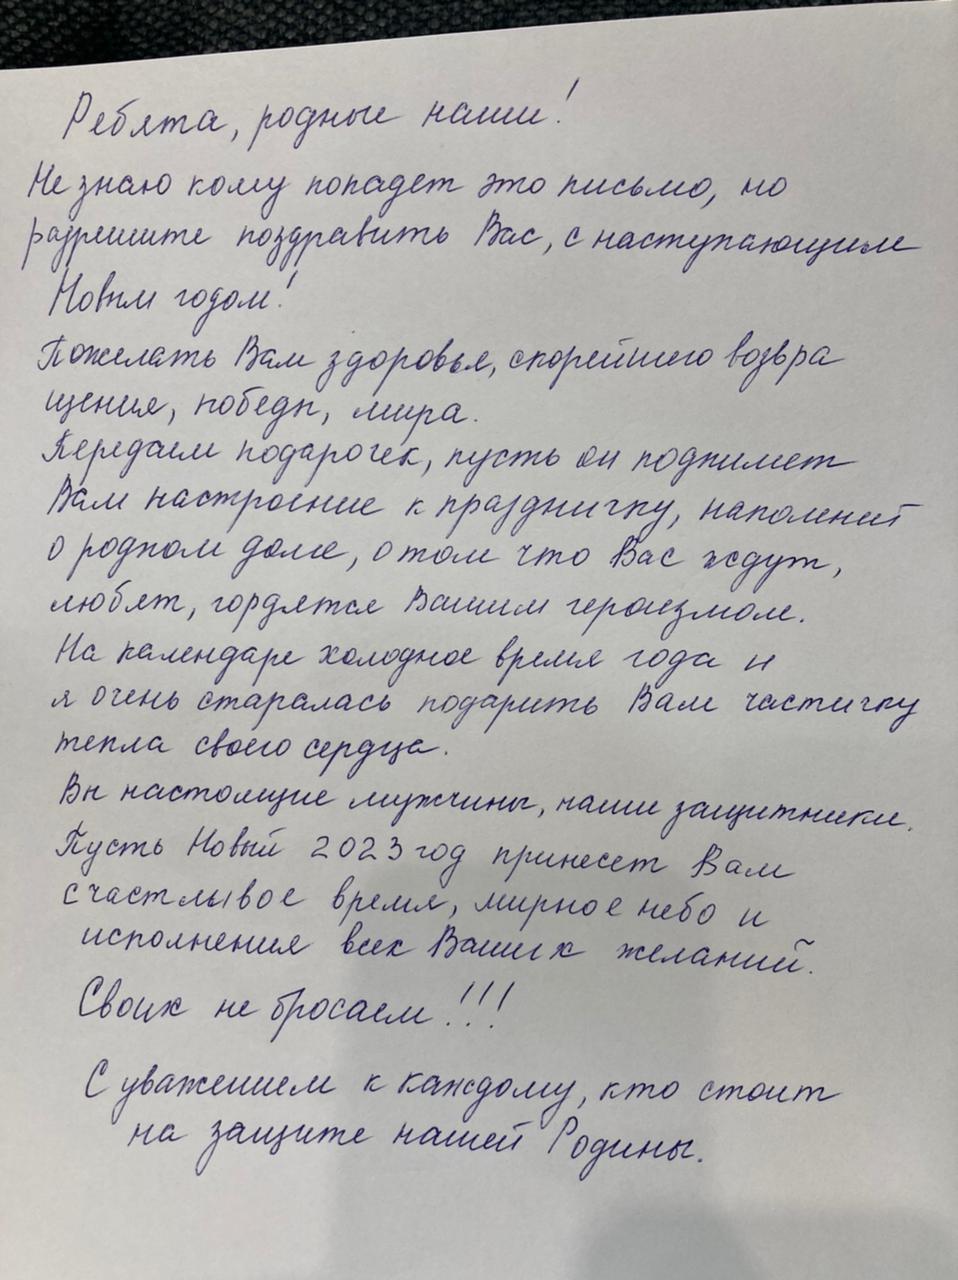 Ребята, родные наши!
Не знаю кому попадет это письмо, но
разрешите поздравить Вас, с наступающим
Новым годом!
Пожелать Вам здоровья, скорейшего возвра
щения, победы, мира.
Передаем подарочек, пусть он поднимет
Вам настроение к праздничку, напомнит
о родном доме, о том что Вас ждут,
любят, гордятся Вашим героизмом.
На календаре холодное время года и
я очень старалась подарить Вам частичку
тепла своего сердца.
Вы настоящие мужчины, наши защитники.
Пусть Новый 2023 год принесет Вам
счастливое время, мирное небо и
исполнения всех Ваших желаний.
Своих не бросаем!!!
С уважением к каждому, кто стоит
на защите нашей Родины.